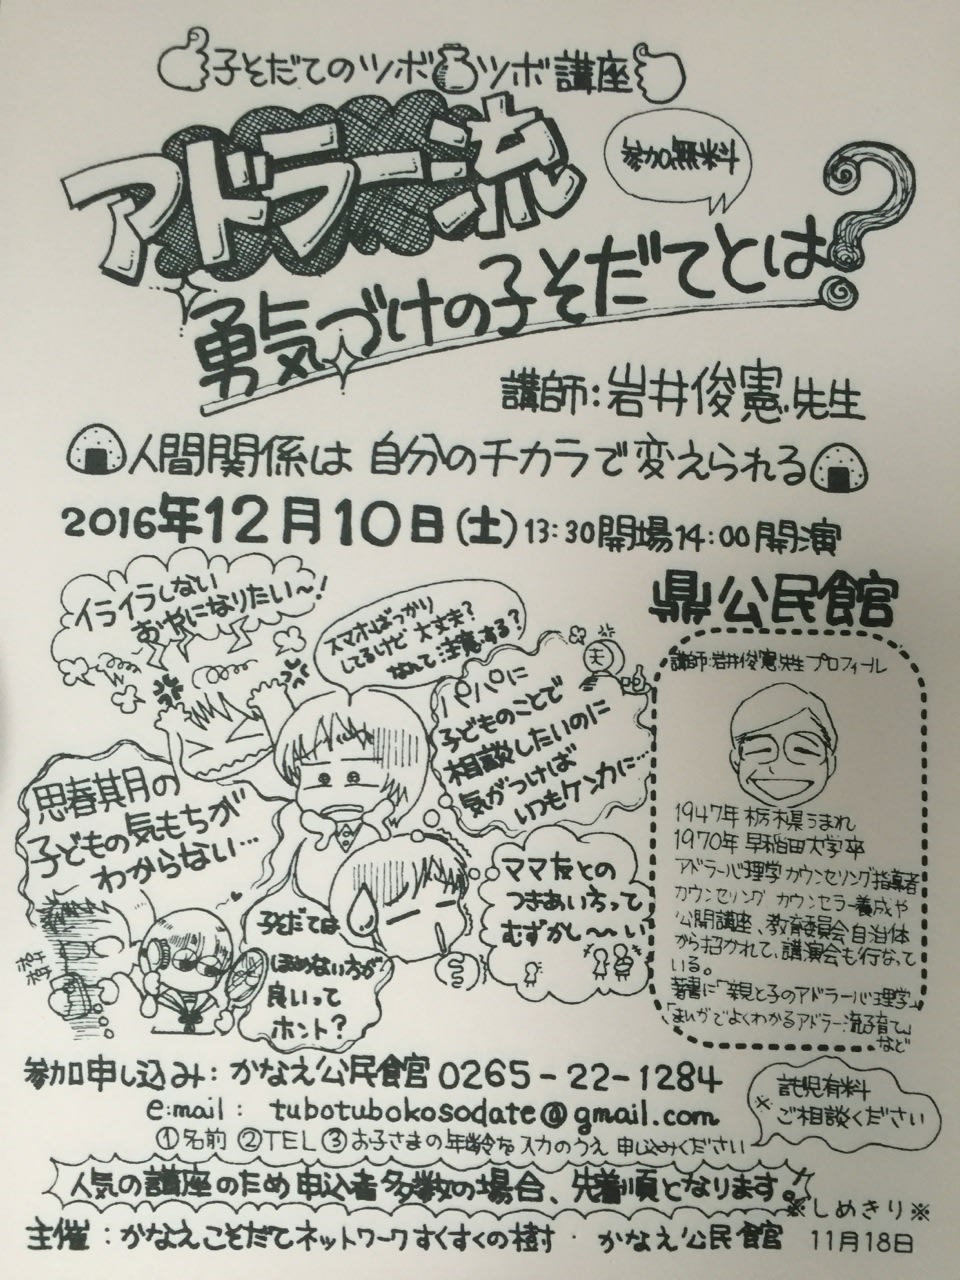 子そだてのツボツボ講座
アドラー流
参加無料
勇気づけの子そだてとは?
講師:岩井俊憲先生
人間関係は 自分のチカラで変えられる
2016年12月10日(土)13:30開場14:00開演
鼎公民館
イライラしない
おやになりたい〜!
スマホばっかり
してるけど 大丈夫?
なんて注意する?
夫
パパに
子どものことで
相談したいのに
気がつけば
いつもケンカに…
思春期の
子どもの気もちが
わからない…
ママ友との
つきあい方って
むずかし〜い
子そだては
ほめない方が
良いって
ホント?
講師:岩井俊憲先生プロフィール
1947年 栃木県うまれ
1970年 早稲田大学卒
アドラー心理学カウンセリング指導者
カウンセリング カウンセラー養成や
公開講座、教育委員会自治体
から招かれて、講演会も行なって
いる。
著書に「親と子のアドラー心理学」
「まんがでよくわかるアドラー流子育て」
など
参加申し込み:かなえ公民館 0265-22-1284
e:mail: tubotubokosodate@gmail.com
①名前 ②TEL ③お子さまの年齢を入力のうえ 申し込みください
※託児有料
ご相談ください
人気の講座のため申込者多数の場合、先着順となります。
※しめきり※
11月18日
主催:かなえこそだてネットワークすくすくの樹・かなえ公民館